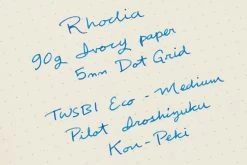 Rhodia
90g Ivory paper
5mm Dot Grid
TWSBI Eco - Medium
Pilot Iroshizuku
Kon-Peki